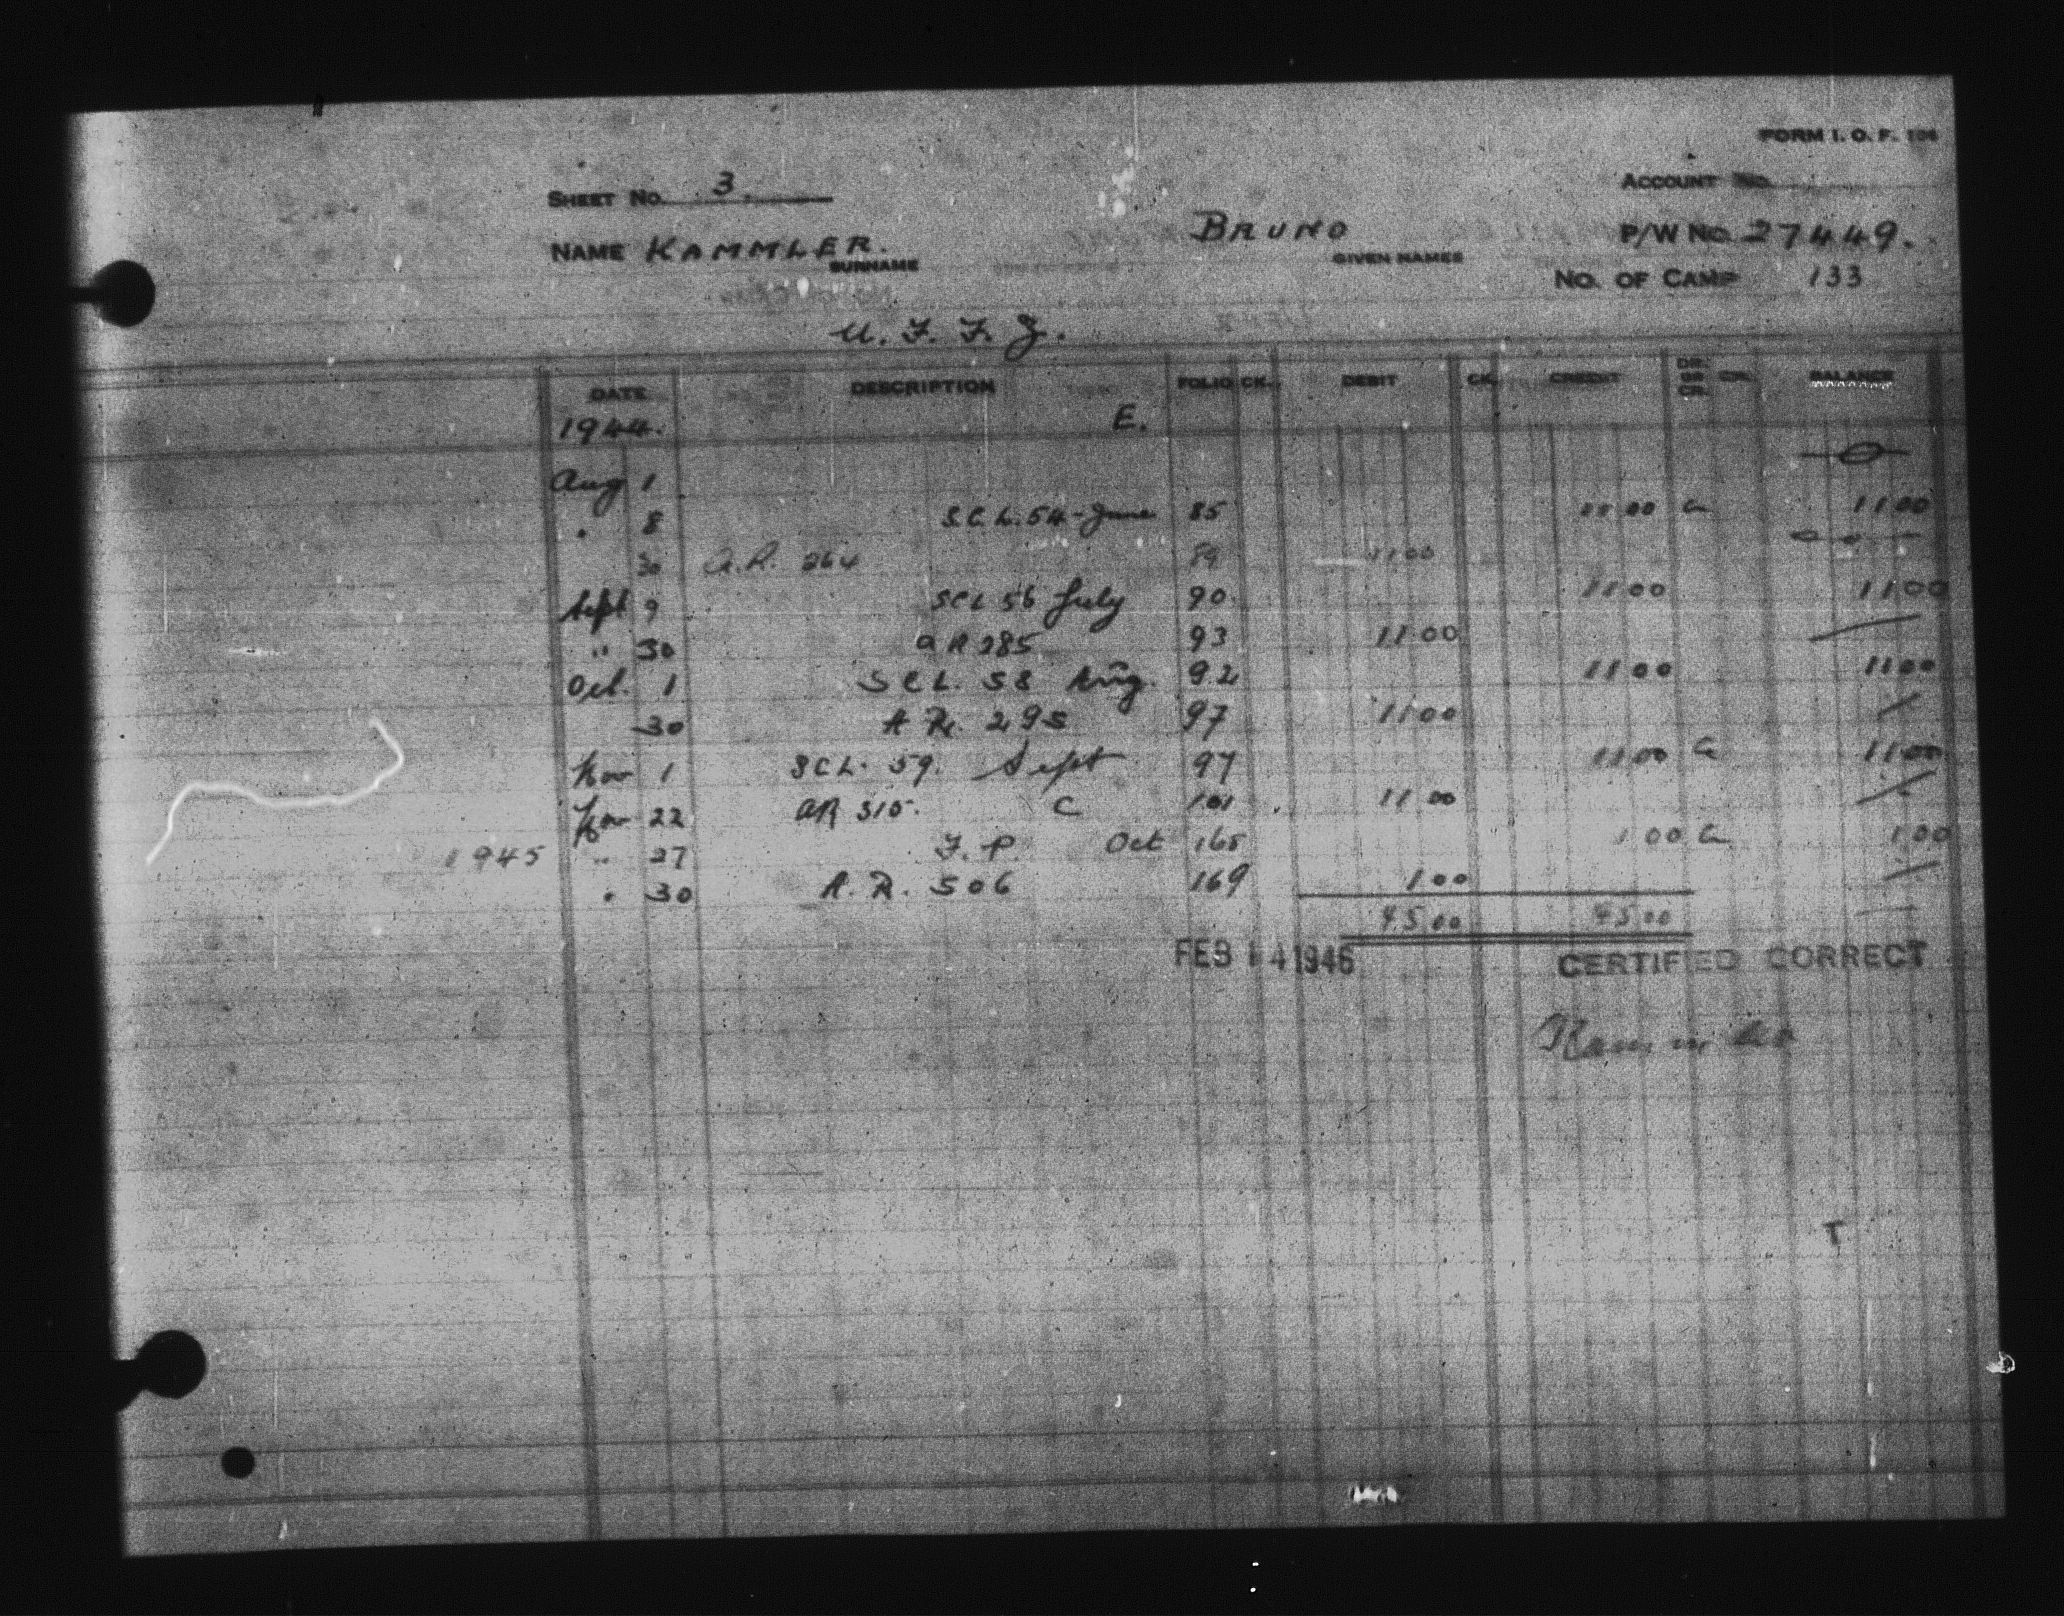 FORM I. O. F. 104
SHEET No. 3. ACCOUNT No.
NAME KAMMLER. BRUNO P/W No. 27449.
SURNAME GIVEN NAMES
No. OF CAMP 133
U. F. F. Z.
DATE DESCRIPTION FOLIO CK. DEBIT CK. CREDIT DR. OR CR. CK. BALANCE
1944. E.
Aug 1 —0—
" 8 S.C.L. 54 - June 85 11 00 Cr 11 00
30 A.R. 264 89 11 00 —0—
Sept 9 SCL 56 July 90 11 00 11 00
" 30 AR 285 93 11 00
Oct. 1 SCL. 58 Aug. 92 11 00 11 00
30 A R. 295 97 11 00
Nov 1 SCL. 59. Sept 97 11 00 Cr 11 00
Nov 22 AR 315. C 101 11 00
1945 " 27 F. P. Oct 165 1 00 Cr 1 00
" 30 A. R. 506 169 1 00
45 00 45 00
FEB 14 1946 CERTIFIED CORRECT
T